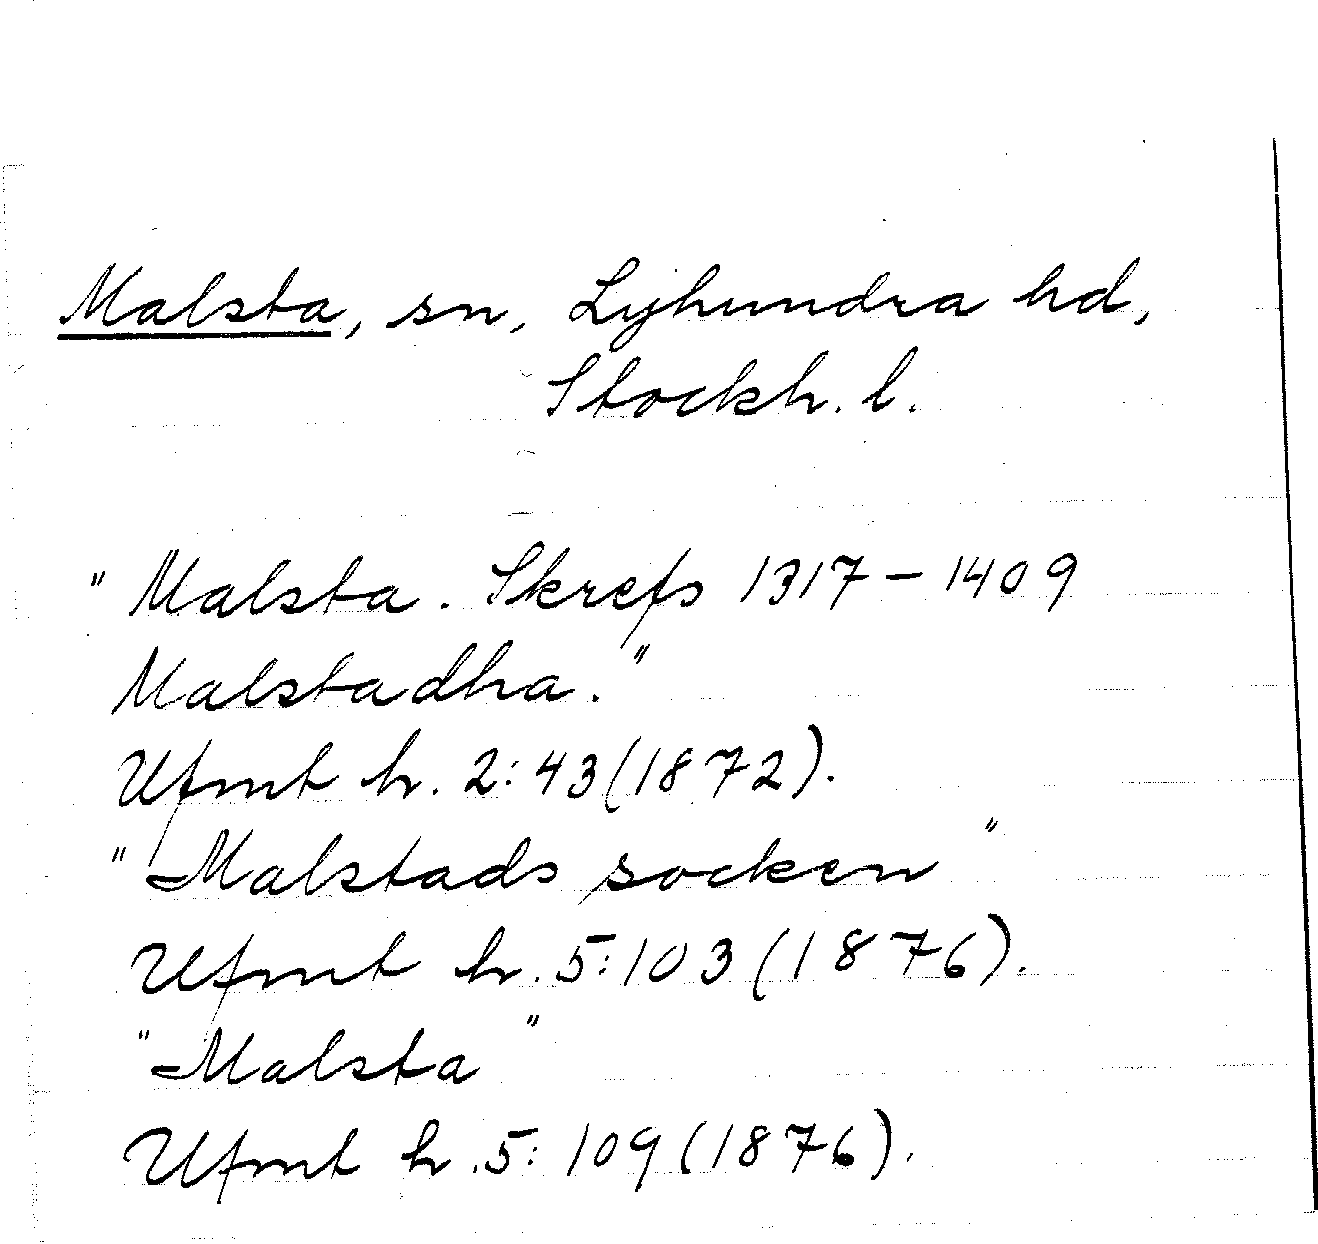 Malsta, sn, Lyhundra hd,
Stockh. l.
"Malsta. Skrefs 1317–1409
Malstadha."
Ufmt h. 2:43(1872).
"Malstads socken"
Ufmt h. 5:103(1876).
"Malsta"
Ufmt h. 5:109(1876).